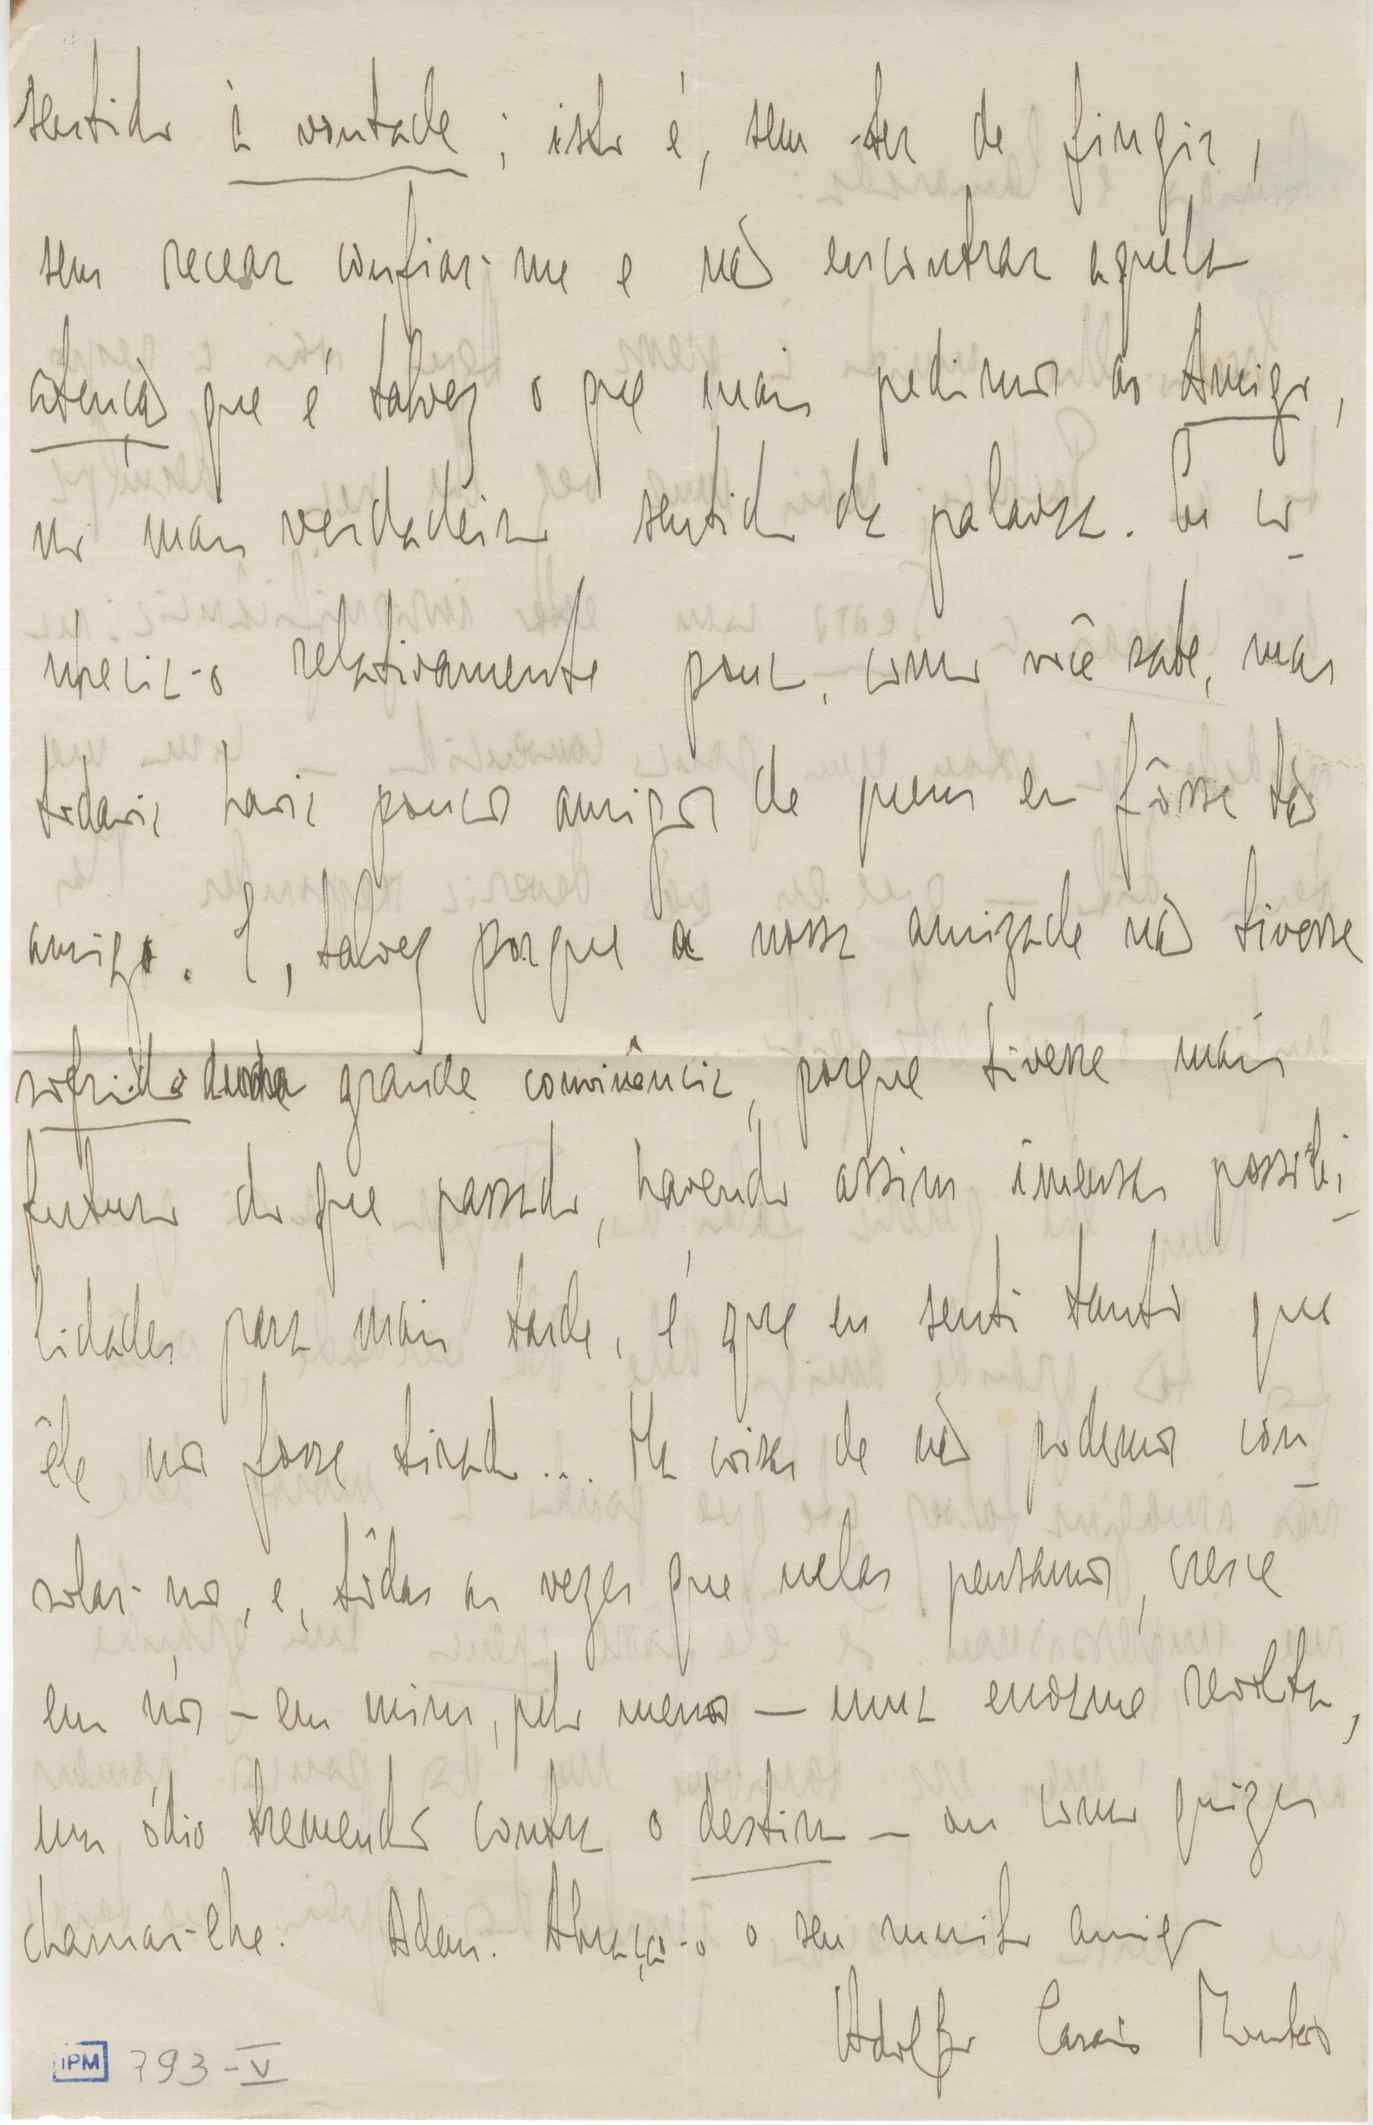 sentido à vontade; isto é, sem ter de fingir,
sem recear confiar-me e não encontrar aquela
atenção que é talvez o que mais pedimos ao Amigo,
no mais verdadeiro sentido da palavra. Eu co-
nhecia-o relativamente pouco, como você sabe, mas
todavia havia poucos amigos de quem eu fôsse tão
amigo. E, talvez porque a nossa amizade não tivesse
sofrido grande convivência, porque tivesse mais
futuro do que passado, havendo assim imensas possibi-
lidades para mais tarde, é que eu senti tanto que
êle nos fosse tirado... Há coisas de não podermos con-
solar-nos, e, tôdas as vezes que nelas pensamos, cresce
em nós – em mim, pelo menos – uma enorme revolta,
um ódio tremendo contra o destino – ou como quizer
chamar-lhe. Adeus. Abraça-o o seu muito amigo
Adolfo Casais Monteiro
IPM 793-V